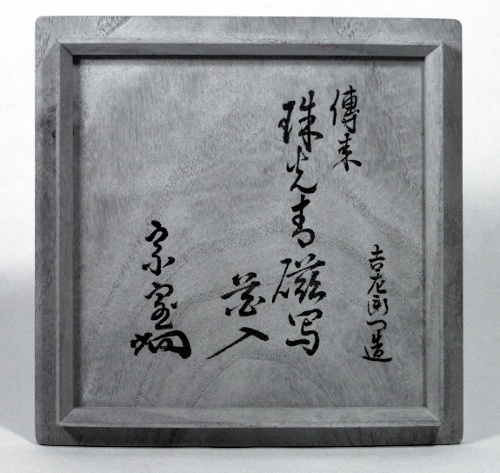 吉左衛門造
傳来
珠光青磁写
入
宗室